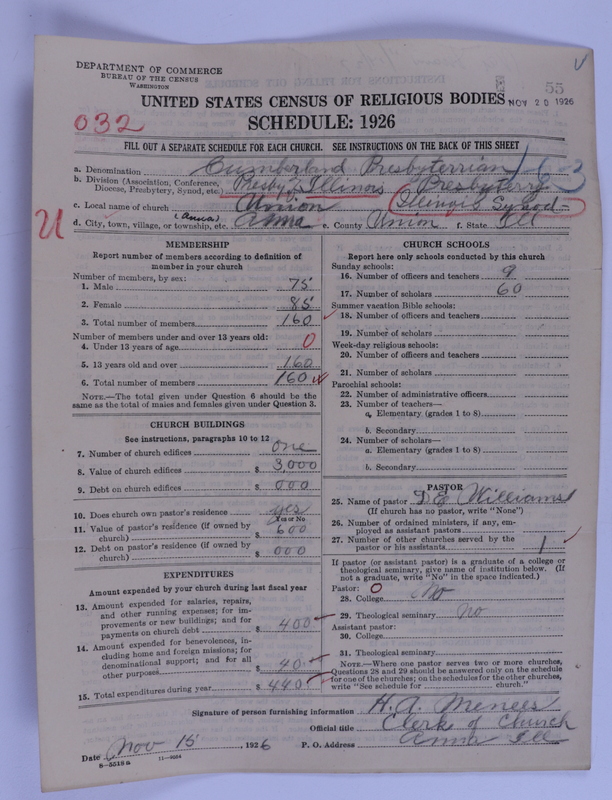 DEPARTMENT OF COMMERCE
BUREAU OF THE CENSUS
WASHINGTON
55
NOV 20 1926
UNITED STATES CENSUS OF RELIGIOUS BODIES
SCHEDULE: 1926
032
FILL OUT A SEPARATE SCHEDULE FOR EACH CHURCH. SEE INSTRUCTIONS ON THE BACK OF THIS SHEET
a. Denomination Cumberland Presbyterrian
b. Division (Association, Conference, Diocese, Presbytery, Synod, etc.) Presby of Illinois Presbytery
c. Local name of church Union Illinois Synod
d. City, town, village, or township, etc. (Anna) Anna e. County Union f. State Ill
MEMBERSHIP
Report number of members according to definition of
member in your church
Number of members, by sex:
1. Male 75
2. Female 85
3. Total number of members 160
Number of members under and over 13 years old:
4. Under 13 years of age 0
5. 13 years old and over 160
6. Total number of members 160
NOTE.—The total given under Question 6 should be the
same as the total of males and females given under Question 3.
CHURCH BUILDINGS
See instructions, paragraphs 10 to 12
7. Number of church edifices one
8. Value of church edifices $ 3,000
9. Debt on church edifices $ 000
10. Does church own pastor's residence yes
Yes or No
11. Value of pastor's residence (if owned by
church) $ 600
12. Debt on pastor's residence (if owned by
church) $ 000
EXPENDITURES
Amount expended by your church during last fiscal year
13. Amount expended for salaries, repairs,
and other running expenses; for im-
provements or new buildings; and for
payments on church debt $ 400
14. Amount expended for benevolences, in-
cluding home and foreign missions; for
denominational support; and for all
other purposes $ 40
15. Total expenditures during year $ 440
CHURCH SCHOOLS
Report here only schools conducted by this church
Sunday schools:
16. Number of officers and teachers 9
17. Number of scholars 60
Summer vacation Bible schools:
18. Number of officers and teachers
19. Number of scholars
Week-day religious schools:
20. Number of officers and teachers
21. Number of scholars
Parochial schools:
22. Number of administrative officers
23. Number of teachers—
a. Elementary (grades 1 to 8)
b. Secondary
24. Number of scholars—
a. Elementary (grades 1 to 8)
b. Secondary
PASTOR
25. Name of pastor D.E. Williams
(If church has no pastor, write "None")
26. Number of ordained ministers, if any, em-
ployed as assistant pastors
27. Number of other churches served by the
pastor or his assistants 1
If pastor (or assistant pastor) is a graduate of a college or
theological seminary, give name of institution below. (If
not a graduate, write "No" in the space indicated.)
Pastor: 0
28. College No
29. Theological seminary No
Assistant pastor:
30. College
31. Theological seminary
NOTE.—Where one pastor serves two or more churches,
Questions 28 and 29 should be answered only on the schedule
for one of the churches; on the schedules for the other churches,
write "See schedule for church."
Signature of person furnishing information H. A. Menees
Official title Clerk of Church
Date Nov 15, 1926 P. O. Address Anna Ill
8-5518a 11-9054